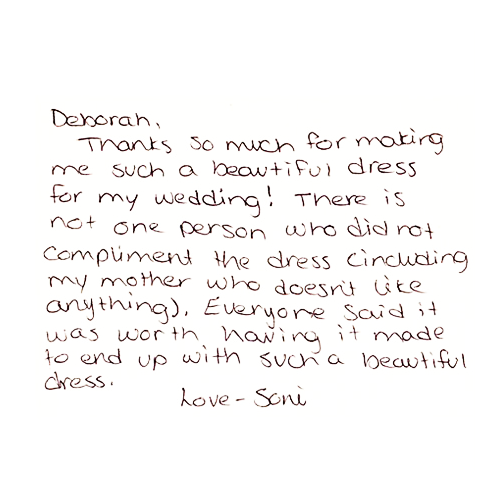 Deborah,
Thanks so much for making
me such a beautiful dress
for my wedding! There is
not one person who did not
compliment the dress (including
my mother who doesn't like
anything). Everyone said it
was worth having it made
to end up with such a beautiful
dress.
Love - Soni